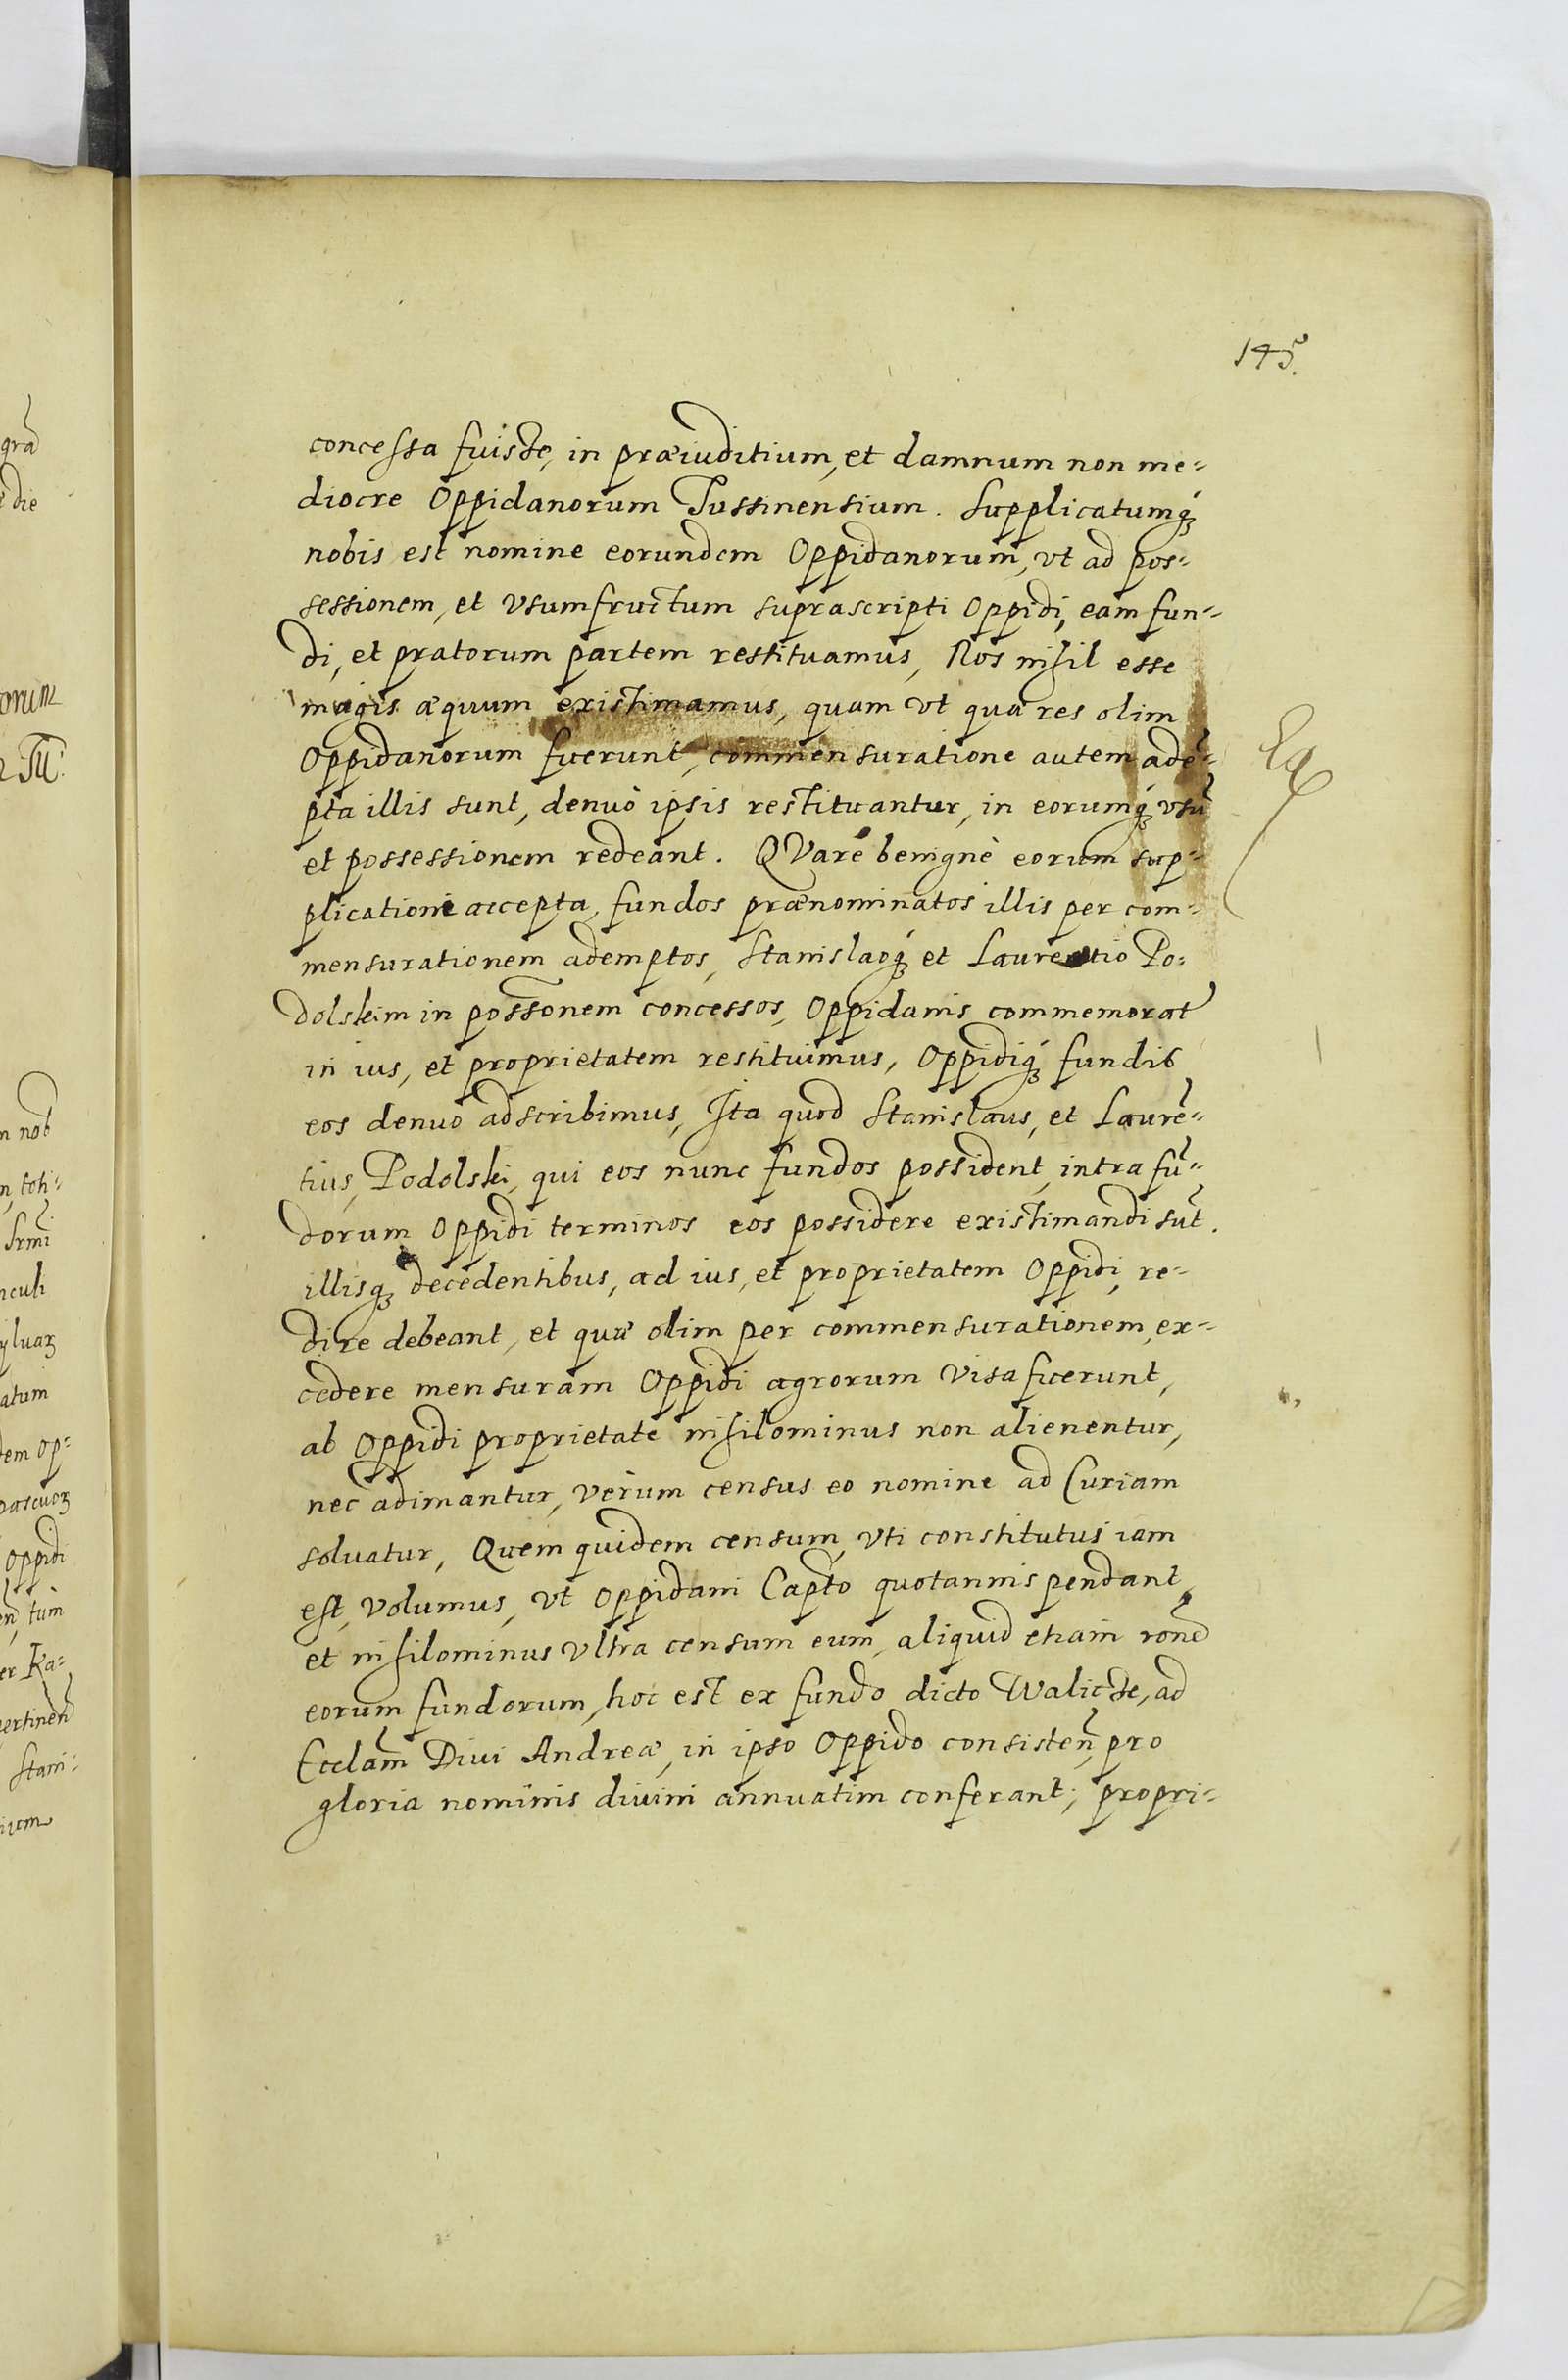 145.
concessa fuisse, in præiuditium, et damnum non me-
diocre Oppidanorum Tussinensium. Supplicatumq́;
nobis est nomine eorundem Oppidanorum, vt ad pos-
sessionem, et vsumfructum suprascripti Oppidi, eam fun-
di, et pratorum partem restituamus, Nos nihil esse
magis æquum existimamus, quam vt quæ res olim
Oppidanorum fuerunt, commensuratione autem adē-
pta illis sunt, denuò ipsis restituantur, in eorumq́; vsū
et possessionem redeant. QVare benignè eorum sup-
plicatione accepta, fundos prænominatos illis per com-
mensurationem ademptos, Stanislaoq́; et Laurentio Po-
dolskim in possōnem concessos, Oppidanis commemorat
in ius, et proprietatem restituimus, Oppidiq́; fundis
eos denuo adscribimus, Ita quod Stanislaus, et Laurē-
tius, Podolski, qui eos nunc fundos possident, intra fū-
dorum Oppidi terminos eos possidere existimandi sūt.
illisq; decedentibus, ad ius, et proprietatem Oppidi, re-
dire debeant, et quæ olim per commensurationem, ex-
cedere mensuram Oppidi agrorum visa fuerunt,
ab Oppidi proprietate nihilominus non alienentur,
nec adimantur, verum census eo nomine ad Curiam
soluatur, Quem quidem censum, vti constitutus iam
est, volumus, vt Oppidani Capto quotannis pendant,
et nihilominus vltra censum eum, aliquid etiam ronē
eorum fundorum, hoc est ex fundo dicto Walicze, ad
Ecclām Diui Andreæ, in ipso Oppido consisteñ, pro
gloria nominis diuini annuatim conferant; propri-